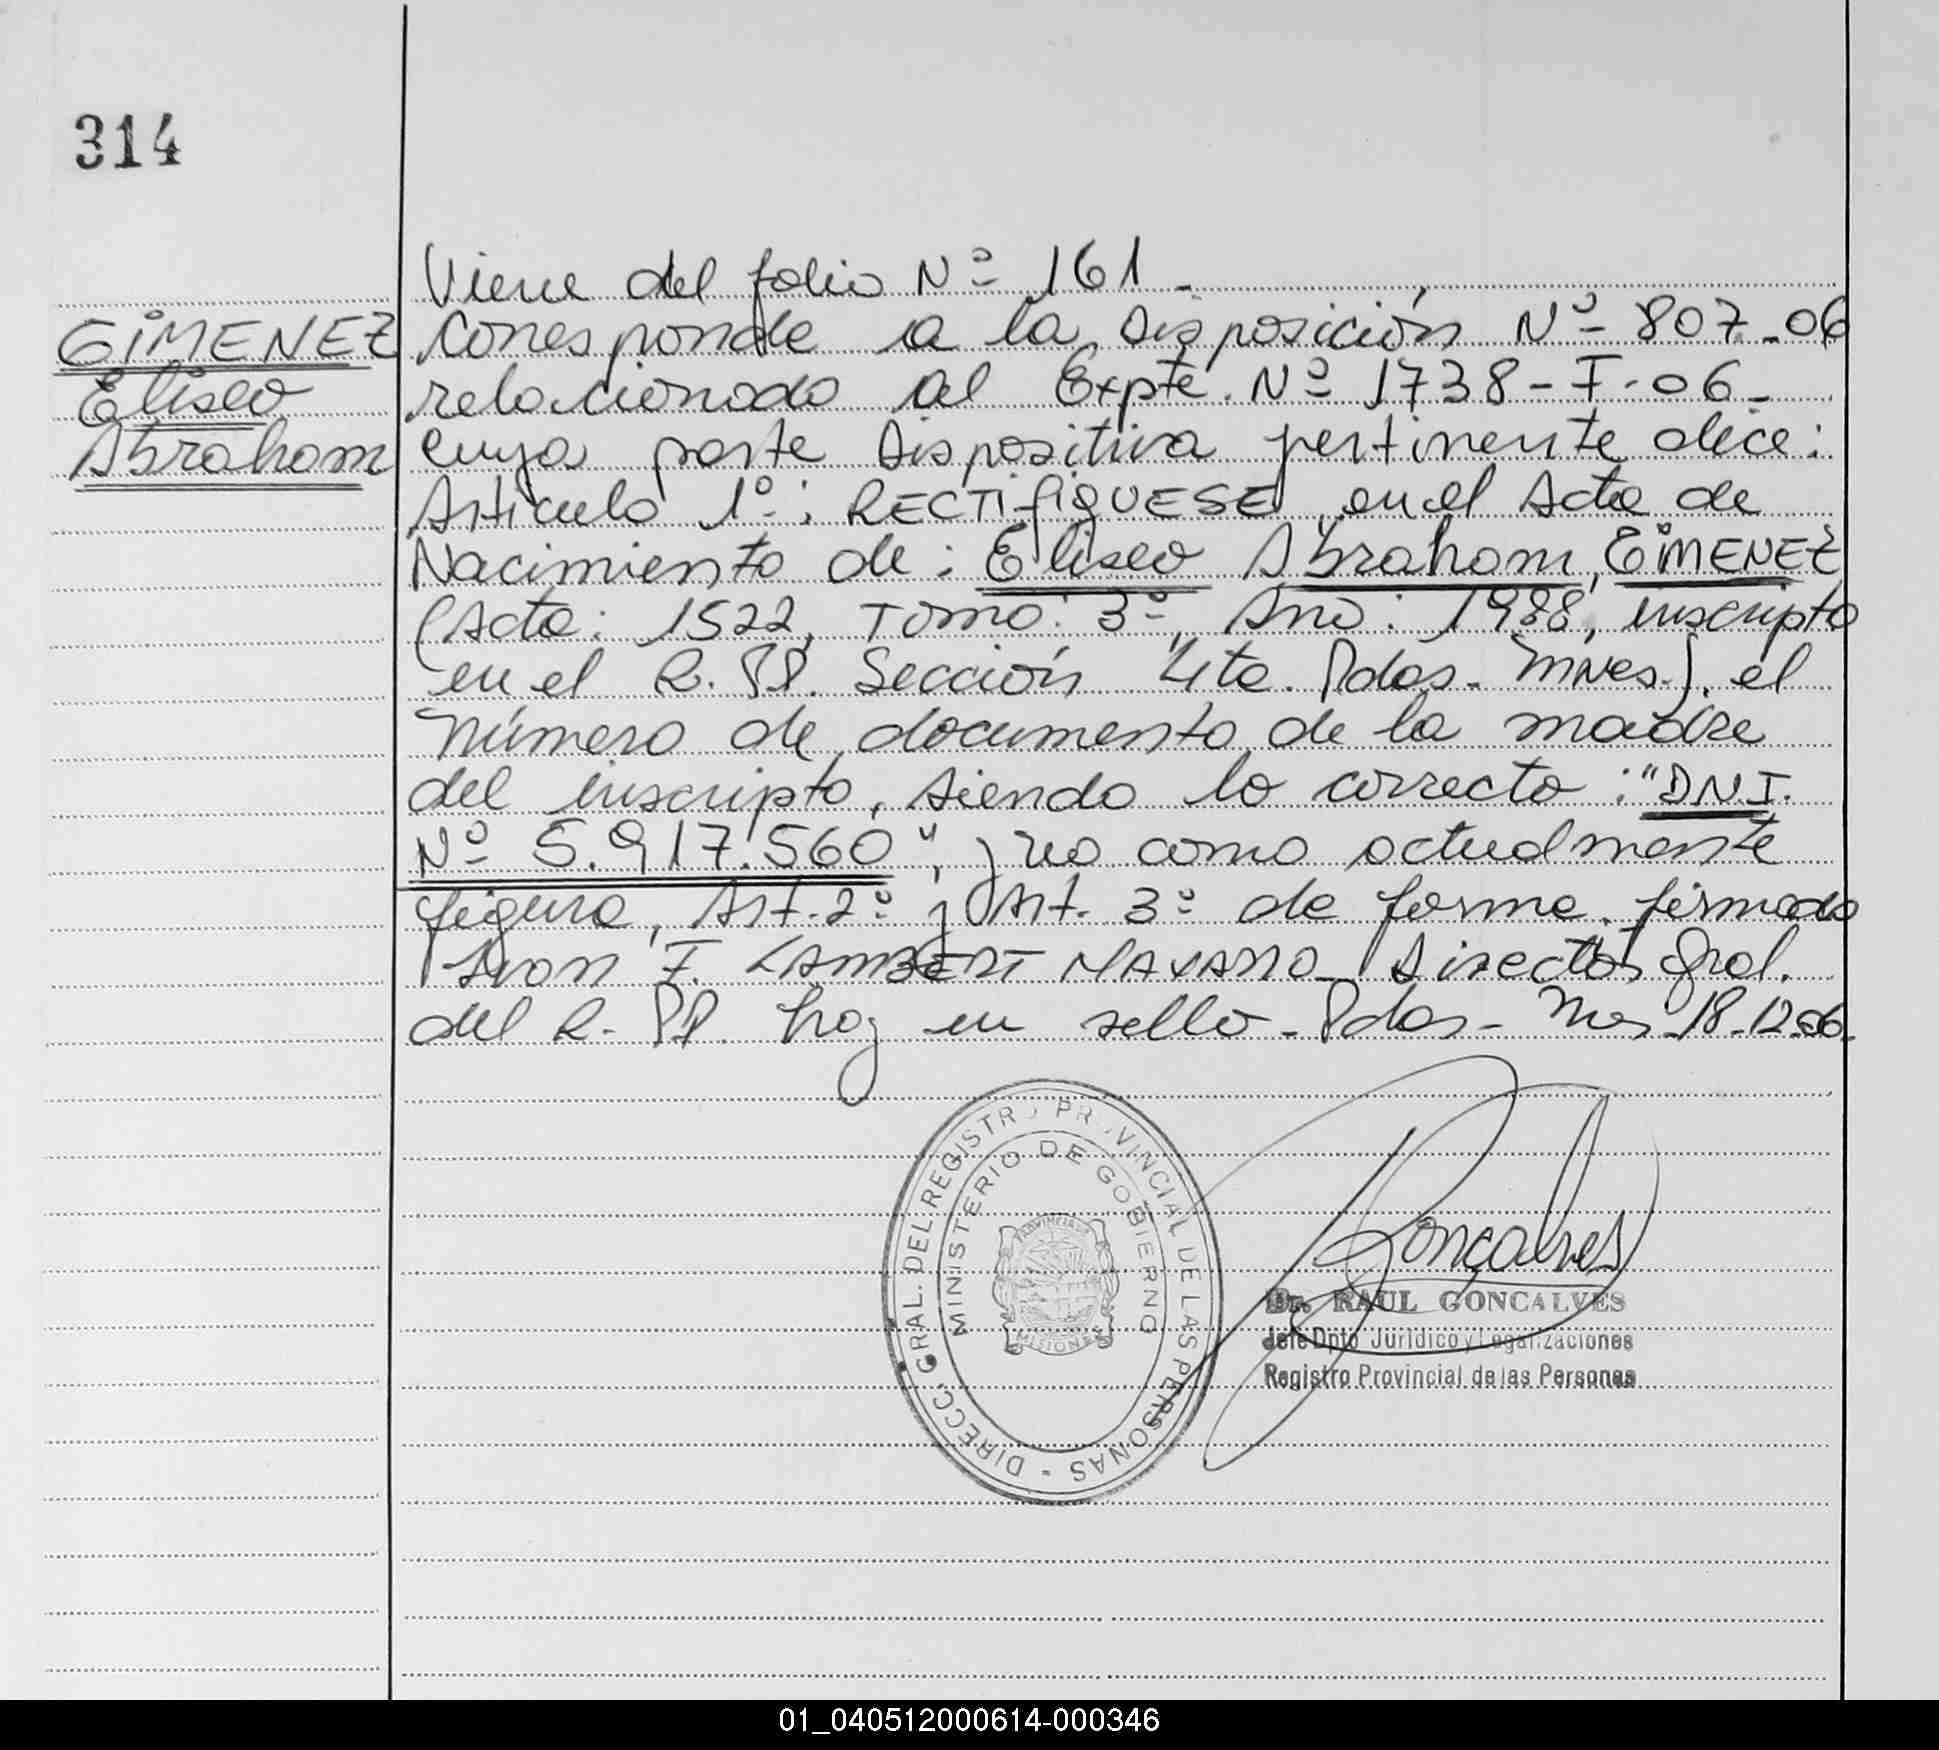 314
Viene del folio Nº 161-
GIMENEZ
Eliseo
Abraham
Corresponde a la Disposición Nº 807-06
relacionado al Expte. Nº 1738-I-06-
cuya parte Dispositiva pertinente dice:
Artículo 1º: RECTIFIQUESE en el Acta de
Nacimiento de: Eliseo Abraham, GIMENEZ
(Acta: 1522, Tomo: 3º, Año: 1988, inscripto
en el R.PP. Sección 4ta. Pdas. Mnes.), el
número de documento de la madre
del inscripto, siendo lo correcto: "DNI.
Nº 5.917.560", y no como actualmente
figura, Art. 2º y Art. 3º de forma. firmado
F. LAMBERT Director Gral.
del R.PP. hay un sello - Pdas - Mnes - 18-12-06-
DIRECC. GRAL. DEL REGISTRO PROVINCIAL DE LAS PERSONAS -
MINISTERIO DE GOBIERNO
PROVINCIA
MISIONES
Gonçalves
Dr. RAUL GONCALVES
Jefe Dpto Jurídico y Legalizaciones
Registro Provincial de las Personas
01_040512000614-000346